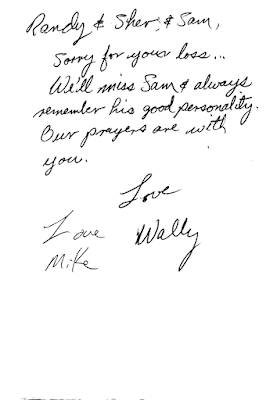 Randy & Sher & Sam,
Sorry for your loss...
We'll miss Sam & always
remember his good personality.
Our prayers are with
you.
Love
Wally
Love
Mike